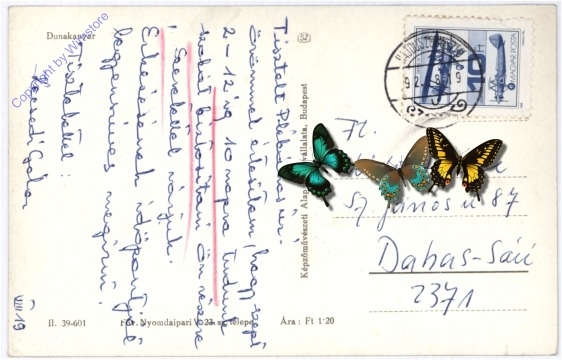 Dunakanyar
Copyright by W-wstore
Tisztelt Plébános úr.
Örömmel értesítem, hogy szept
2-12 ig 10 napra tudunk
szobát biztosítani Ön részére
. Szeretettel várjuk.
Érkezésének időpontját
legyen szíves megírni.
Tisztelettel:
Gabor
VIII 19
SZ
Képzőművészeti Alap Vállalata, Budapest
MAGYAR POSTA
10
Ft.
Sz János u 87
Dabas-Sári
2371
II. 39-601
Nyomdaipari 23. sz. telepe
Ára: Ft 1·20